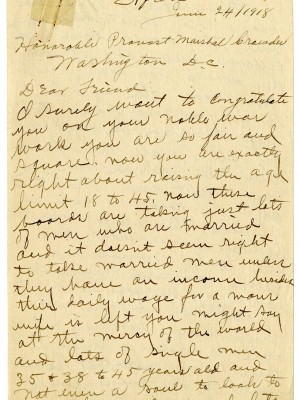 June 24/1918
Honorable Provost Marshal Crowder
Washington D.C.
Dear Friend
I surely want to congratulate
you on your noble war
work you are so fair and
square. now you are exactly
right about raising the age
limit 18 to 45. now these
boards are taking just lots
of men who are married
and it doesn't seem right
to take married men unless
they have an income besides
their daily wage for a mans
wife is left you might say
at the mercy of the world
and lots of single men
35 & 38 to 45 years old and
not even a soul to look to